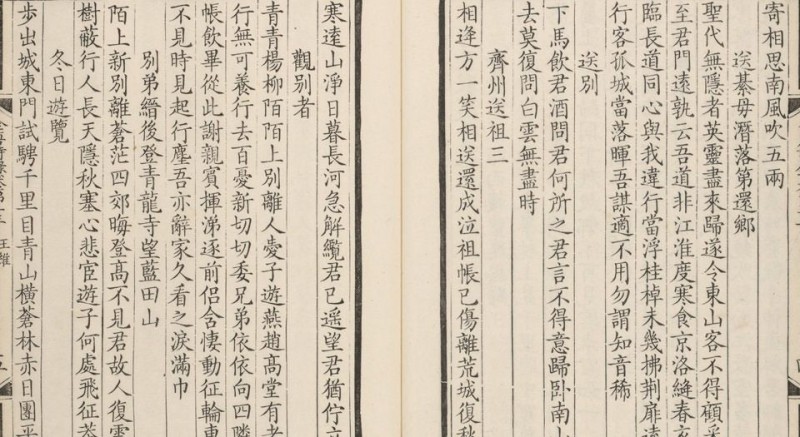 寄相思南風吹五兩
送綦毋潛落第還鄉
聖代無隱者英靈盡來歸遂令東山客不得顧采
至君門遠孰云吾道非江淮度寒食京洛縫春衣
臨長道同心與我違行當浮桂棹未幾拂荊扉遠
行客孤城當落暉吾謀適不用勿謂知音稀
送別
下馬飲君酒問君何所之君言不得意歸臥南
去莫復問白雲無盡時
齊州送祖三
相逢方一笑相送還成泣祖帳已傷離荒城復愁
寒遠山淨日暮長河急解纜君已遙望君猶佇立
觀別者
青青楊柳陌陌上別離人愛子遊燕趙高堂有老
行無可養行去百憂新切切委兄弟依依向四鄰
帳飲畢從此謝親賓揮涕逐前侶含悽動征輪車
不見時見起行塵吾亦辭家久看之淚滿巾
別弟縉後登青龍寺望藍田山
陌上新別離蒼茫四郊晦登高不見君故人復雲
樹蔽行人長天隱秋塞心悲宦遊子何處飛征蓋
冬日遊覽
步出城東門試騁千里目青山橫蒼林赤日團平
王維